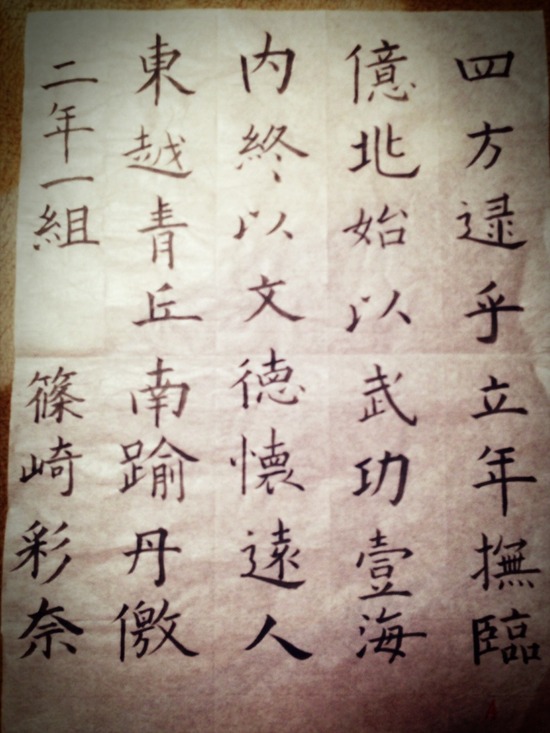 四方逮乎立年撫臨
億兆始以武功壹海
内終以文徳懷遠人
東越青丘南踰丹儌
二年一組 篠崎彩奈